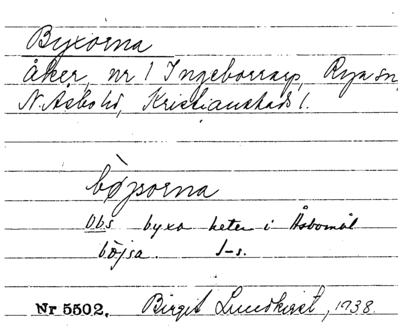 Byxorna
Åker, nr 1 Ingeborrarp, Rya sn,
N. Åsbo hd, Kristianstads l.
bø̀psorna
Obs byxa heter i Åsbomål
böjsa. I-s.
Nr 5502. Birgit Lundkvist, 1938.